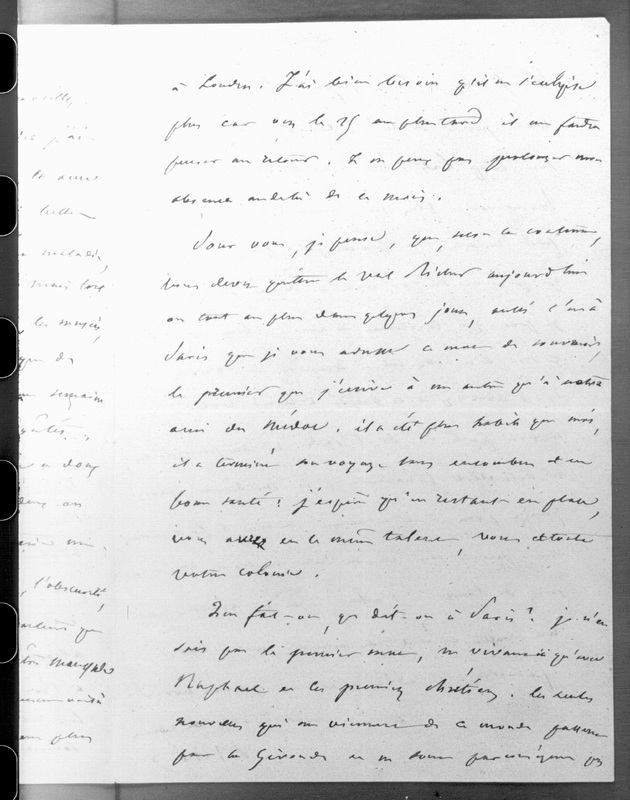 à Londres. J'ai bien besoin qu'il ne s'éclipse
plus car vers le 25 au plus tard il me faudra
penser au retour. Je ne peux pas prolonger mon
absence au delà de ce mois.
Pour vous, je pense, que, selon la coutume,
vous devez quitter le Val Richer aujourd'hui
ou tout au plus dans quelques jours, aussi c'est à
Paris que je vous adresse ce mot de souvenir,
le premier que j'écrive à un autre qu'à notre
ami du Médoc. il a été plus habile que moi,
il a terminé son voyage sans encombre et en
bonne santé : j'espère qu'en restant en place,
vous avez eu le même talent, vous et toute
votre colonie.
Que fait-on, que dit-on à Paris ? je n'en
sais pas le premier mot, ne vivant ici qu'avec
Raphael et les premiers chrétiens. les seules
nouvelles qui me viennent de ce monde passent
par la Gironde et ne sont par conséquent pas
mais
les musées,
semaine
a donc
l'obscurité,
manquées
plus